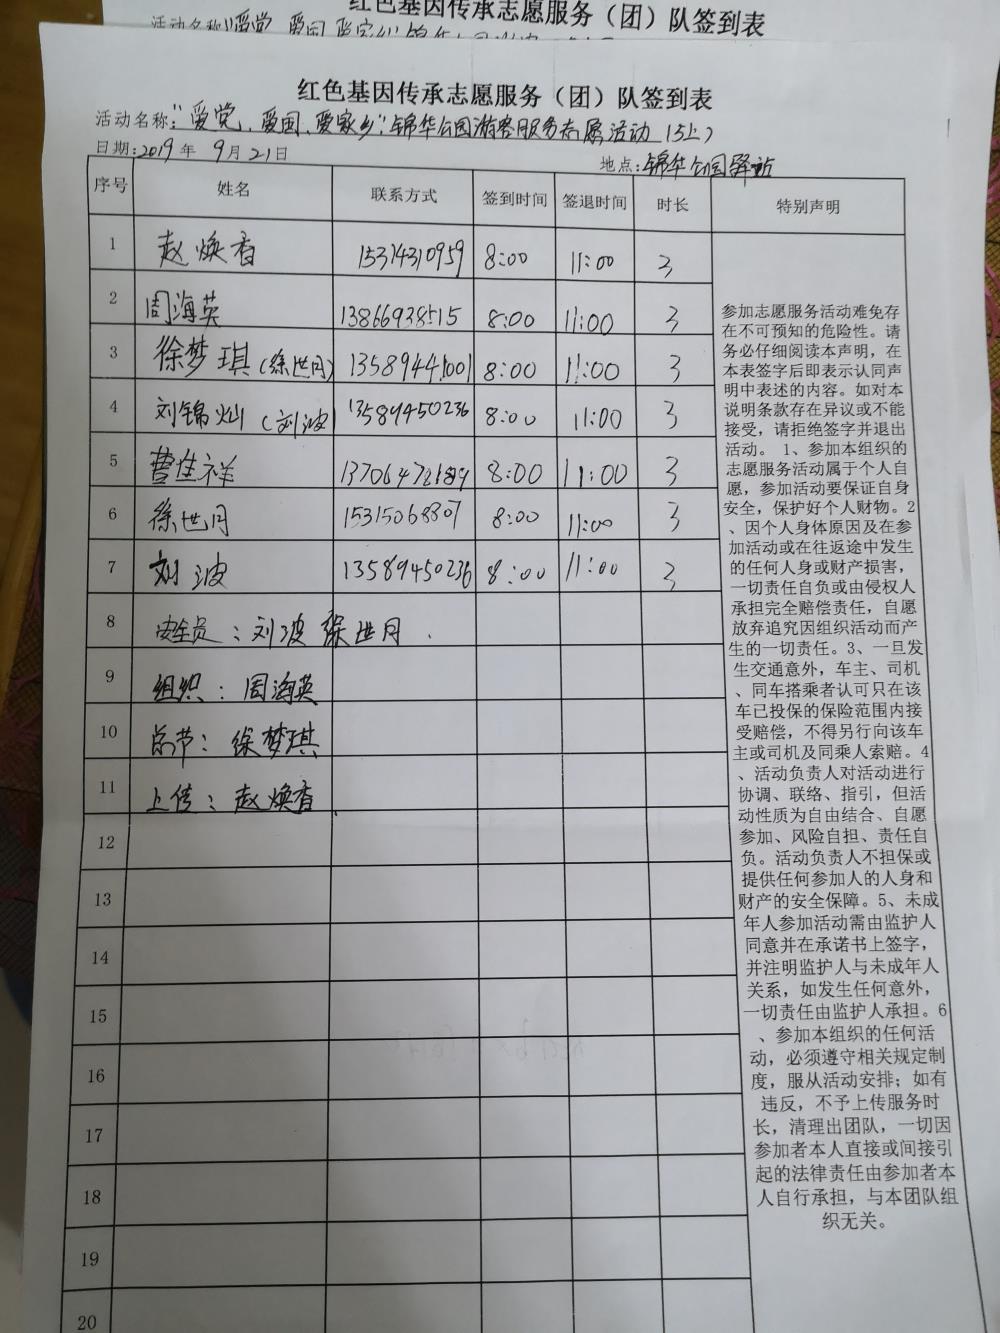 红色基因传承志愿服务（团）队签到表
红色基因传承志愿服务（团）队签到表
活动名称："爱党、爱国、爱家乡"锦华公园游客服务志愿活动（5上）
日期：2019年 9月21日
地点：锦华公园驿站
序号 姓名 联系方式 签到时间 签退时间 时长 特别声明
1 赵焕香 15314310959 8:00 11:00 3
2 周海英 13866938515 8:00 11:00 3
3 徐梦琪（徐世月） 13589441001 8:00 11:00 3
4 刘锦灿（刘波 13589450236 8:00 11:00 3
5 曹佳祥 8:00 11:00 3
6 徐世月 15315068807 8:00 11:00 3
7 刘波 13589450236 8:00 11:00 3
8 安全员：刘波 徐世月
9 组织：周海英
10 总节：徐梦琪
11 上传：赵焕香
12
13
14
15
16
17
18
19
20
参加志愿服务活动难免存
在不可预知的危险性。请
务必仔细阅读本声明，在
本表签字后即表示认同声
明中表述的内容。如对本
说明条款存在异议或不能
接受，请拒绝签字并退出
活动。 1、参加本组织的
志愿服务活动属于个人自
愿，参加活动要保证自身
安全，保护好个人财物。2
、因个人身体原因及在参
加活动或在往返途中发生
的任何人身或财产损害，
一切责任自负或由侵权人
承担完全赔偿责任，自愿
放弃追究因组织活动而产
生的一切责任。3、一旦发
生交通意外，车主、司机
、同车搭乘者认可只在该
车已投保的保险范围内接
受赔偿，不得另行向该车
主或司机及同乘人索赔。4
、活动负责人对活动进行
协调、联络、指引，但活
动性质为自由结合、自愿
参加、风险自担、责任自
负。活动负责人不担保或
提供任何参加人的人身和
财产的安全保障。5、未成
年人参加活动需由监护人
同意并在承诺书上签字，
并注明监护人与未成年人
关系，如发生任何意外，
一切责任由监护人承担。6
、参加本组织的任何活
动，必须遵守相关规定制
度，服从活动安排；如有
违反，不予上传服务时
长，清理出团队，一切因
参加者本人直接或间接引
起的法律责任由参加者本
人自行承担，与本团队组
织无关。